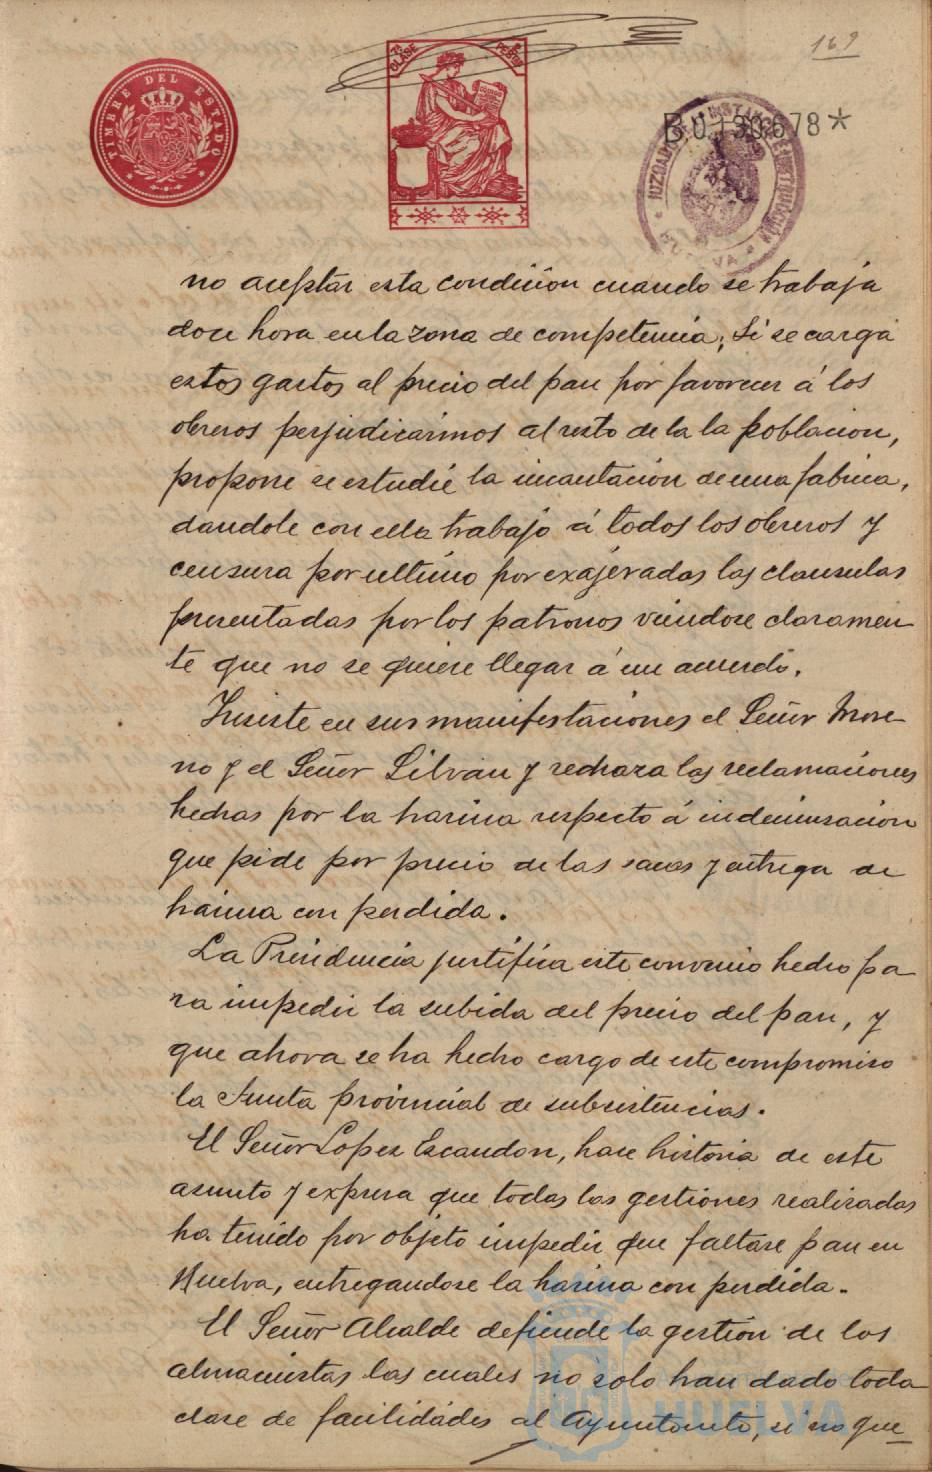 169
TIMBRE DEL ESTADO
7ª CLASE
PESETAS
B.0.130.678*
JUZGADO DE 1ª INSTANCIA E INSTRUCCIÓN
HUELVA
no aceptar esta condicion cuando se trabaja
doce hora en la zona de competencia; Si se carga
estos gastos al precio del pan por favorecer á los
obreros perjudicarimos al resto de la la poblacion,
propone se estudie la incautacion de una fabrica,
dandole con ella trabajo á todos los obreros y
censura por ultimo por exajeradas las clausulas
presentadas por los patronos viendose claramen-
te que no se quiere llegar á un acuerdo.
Insiste en sus manifestaciones el Señor More-
no y el Señor Silvan y rechaza las reclamaciones
hechas por la harina respecto á indemnizacion
que pide por precio de las sacas y entrega de
harina con perdida.
La Presidencia justifica este convenio hecho pa-
ra impedir la subida del precio del pan, y
que ahora se ha hecho cargo de este compromiso
la Junta provincial de subsistencias.
El Señor Lopez Escandon, hace historia de este
asunto y expresa que todas las gestiones realizadas
ha tenido por objeto impedir que faltase pan en
Huelva, entregandose la harina con perdida.
El Señor Alcalde defiende la gestion de los
almacenistas las cuales no solo han dado toda
clase de facilidades al Ayuntamto, si no que
HUELVA